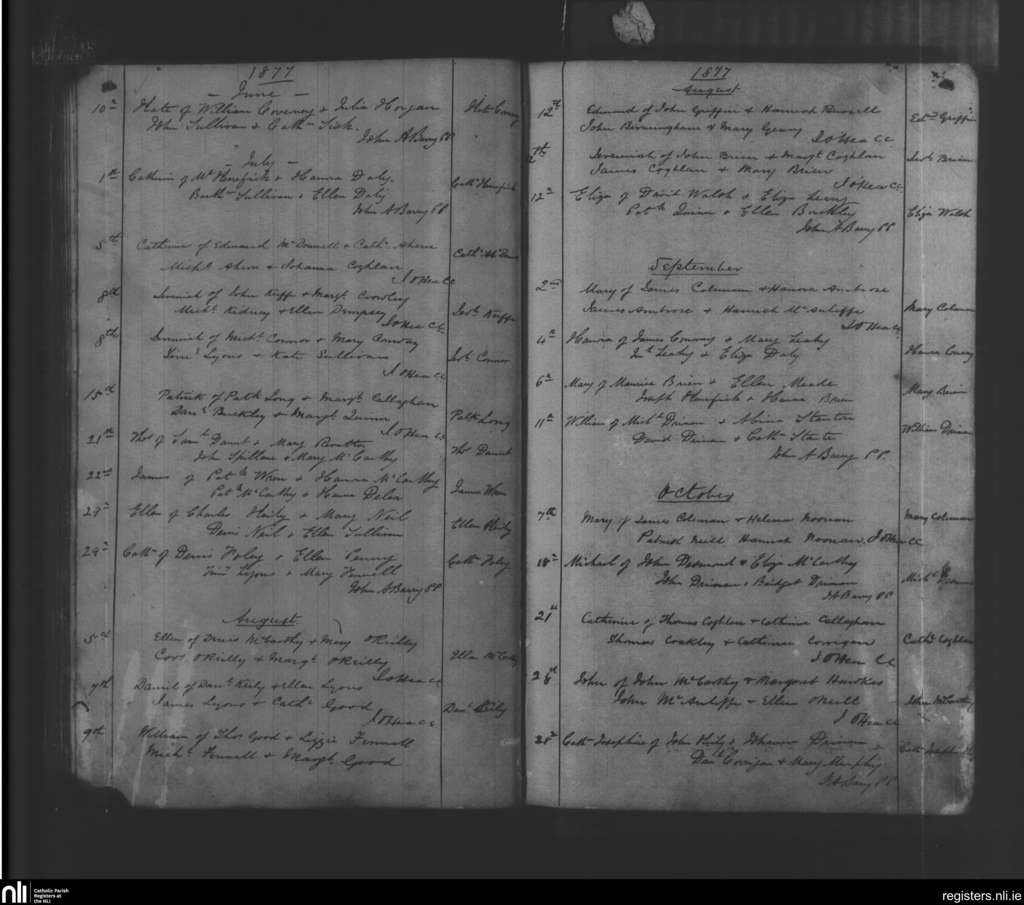 1877
- June -
10th Kate of William Coveney & Julia Horgan Kate Coveney
John Sullivan & Cathn Sisk.
John A Barry PP
- July -
1st Catherine of Ml Henifick & Hanora Daly.
Barthw Sullivan & Ellen Daly Cathn Henifick
John A Barry PP
5th Catherine of Edmund McDonnell & Cath. Ahern
Michl Ahern & Johanna Coghlan
J O'Hea CC
8th Jeremiah of John Keeffe & Margt Crowley
Michl Kidney & Ellen Dempsey Jerh Keeffe
J O'Hea CC
8th Jeremiah of Michl Connor & Mary
Lyons & Kate Sullivan Jerh Connor
J O'Hea CC
15th Patrick of Patk Long & Margt Callaghan
Danl Buckley & Margt Quinn Patk Long
J O'Hea CC
21st Thos of Saml Daunt & Mary
Joh Spillane & Mary McCarthy Thos Daunt
22nd James of Patk & Hanora McCarthy
Patk McCarthy & Hanora James
29th Ellen of Charles Heily & Mary Neil
Denis Neil & Ellen Sullivan Ellen Heily
29th Cathn of Denis Foley & Ellen Penny Cathn Foley
Timy Lyons & Mary Fennell
John A Barry PP
August
5th Ellen of Denis McCarthy & Mary O'Reilly
Cors O'Reilly & Margt O'Reilly Ellen McCarthy
J O'Hea CC
7th Daniel of Danl Keily & Ellen Lyons
James Lyons & Cath. Good Danl Keily
J O'Hea CC
9th William of Thos Good & Lizzie Fennell
Michl Fennell & Margt Good
1877
August
12th Edmund of John Griffin & Hannah Russell Edmd Griffin
John Birmingham & Mary Geany
J O'Hea CC
Jeremiah of John Brien & Margt Coghlan Jerh Brien
James Coghlan & Mary Brien
J O'Hea CC
12th Eliza of David Walsh & Eliza Leary
Patk & Ellen Buckley Eliza Walsh
John A Barry PP
September
2nd Mary of James Coleman & Hanora Ambrose
James Ambrose & Hannah McAuliffe Mary Coleman
J O'Hea CC
4th Hanora of James Conway & Mary Leahy
Leahy & Eliza Daly Hanora Conway
6th Mary of Maurice Brien & Ellen Meade Mary Brien
Joseph Henifick & Hanora Brien
11th William of Michl Drinan & Abina Stanton
David Drinan & Cathn Stanton William Drinan
John A Barry PP.
October
7th Mary of James Coleman & Helena Noonan Mary Coleman
Patrick Neill Hannah Noonan. J O'Hea CC
18th Michael of John Desmond & Eliza McCarthy
John Drinan & Bridget Drinan Michl Desmond
JA Barry PP
21st Catherine of Thomas Coghlan & Catherine Callaghan
Thomas Coakley & Catherine Corrigan Cathe Coghlan
J O'Hea CC
John of John McCarthy & Margaret Hawkes
John McAuliffe & Ellen O'Neill John McCarthy
J O'Hea CC
28th Cathn Josephine of John Heily & Drinan
Danl Corrigan & Mary Murphy
JA Barry PP
nli
Catholic Parish
Registers at
the NLI
registers.nli.ie